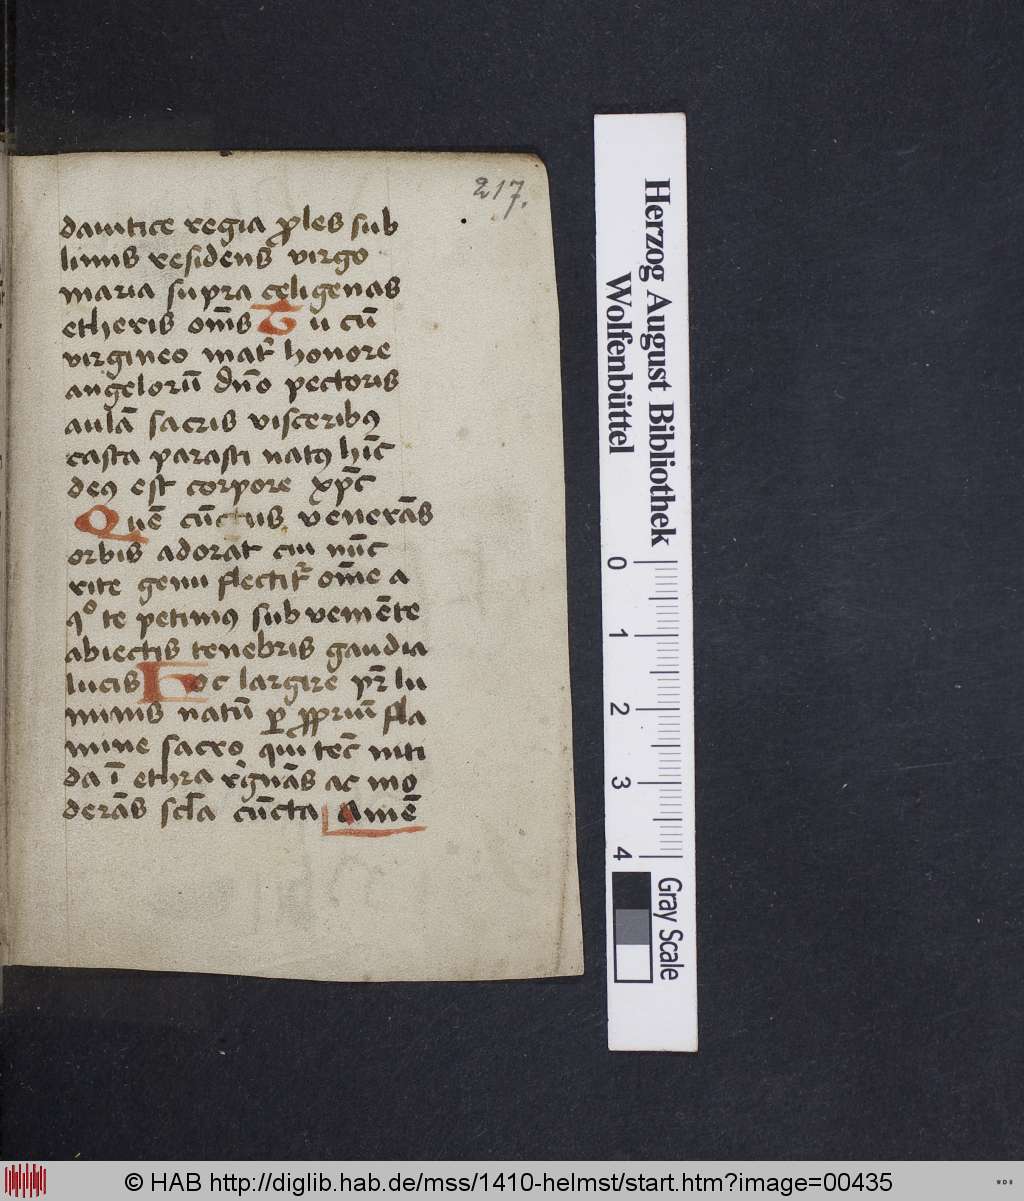 217.
dauitice regia ꝓles sub
limis residens virgo
maria supra celigenas
etheris om̄s Tu cū
virgineo mat̉ honore
angelorū dn̄o pectoris
aulā sacris visceribꝯ
casta parasti natꝯ hīc
deꝯ est corpore xp̄c
Quē cūctus venerās
orbis adorat cui nūc
rite genu flectit̉ om̄e a
qº te petimꝯ sub vemēte
abiectis tenebris gaudia
lucis Hoc largire pr̄ lu
minis natū ꝑ ꝓpriū fla
mine sacro qui tec̄ niti
da ī ethra rḡnās ac mo
derās scl̄a cūcta Amē
Herzog August Bibliothek
Wolfenbüttel
0
1
2
3
4
Gray Scale
© HAB http://diglib.hab.de/mss/1410-helmst/start.htm?image=00435
WDB